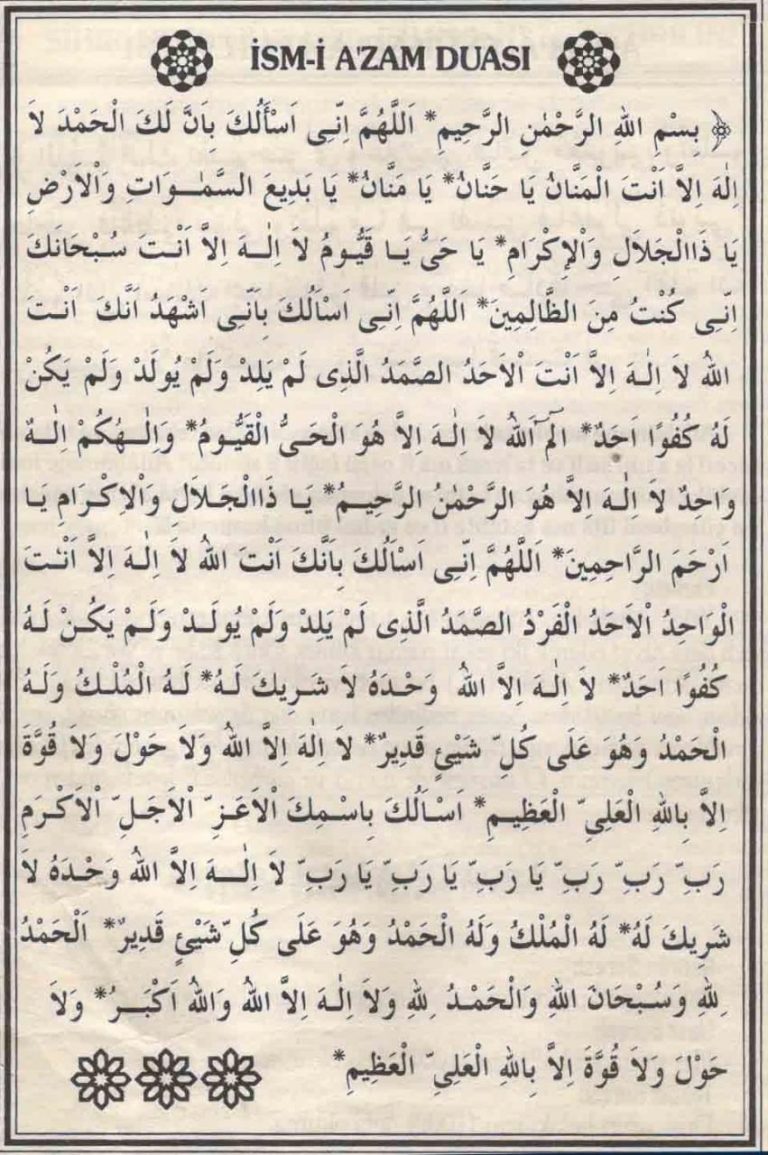 İSM-İ A'ZAM DUASI
بِسْمِ اللهِ الرَّحْمٰنِ الرَّحِيمِ* اَللَّهُمَّ اِنِّى اَسْأَلُكَ بِاَنَّ لَكَ الْحَمْدَ لاَ
اِلٰهَ اِلاَّ اَنْتَ الْمَنَانُ يَا حَنَّانُ* يَا مَنَّانُ* يَا بَدِيعَ السَّمٰـوَاتِ وَاْلاَرْضِ
يَا ذَاالْجَلاَلِ وَاْلاِكْرَامِ* يَا حَىُّ يَـا قَيُّـومُ لاَ اِلٰـهَ اِلاَّ اَنْـتَ سُـبْحَانَكَ
اِنّـِى كُنْتُ مِنَ الظَّالِمِينَ* اَللَّهُمَّ اِنِى اَسْاَلُكَ بِاَنـِى اَشْهَدُ اَنَّكَ اَنْـتَ
اللهُ لاَ اِلٰـهَ اِلاَّ اَنْتَ اْلاَحَدُ الصَّمَدُ الَّذِى لَمْ يَلِدْ وَلَمْ يُولَدْ وَلَمْ يَكُنْ
لَهُ كُفُوًا اَحَدٌ* الٓمٓ اَللهُ لاَ اِلٰـهَ اِلاَّ هُوَ الْحَىُّ الْقَيُّـومُ* وَاِلٰـهُكُمْ اِلٰـهٌ
وَاحِدٌ لاَ اِلٰـهَ اِلاَّ هُوَ الرَّحْمٰنُ الرَّحِيـمُ* يَـا ذَاالْجَلاَلِ وَاْلاِكْرَامِ يَـا
اَرْحَمَ الرَّاحِمِينَ* اَللَّهُمَّ اِنِّـى اَسْاَلُكَ بِاَنَّكَ اَنْتَ اللهُ لاَ اِلٰـهَ اِلاَّ اَنْـتَ
الْوَاحِدُ اْلاَحَدُ الْفَرْدُ الصَّمَدُ الَّذِى لَمْ يَلِدْ وَلَمْ يُولَـدْ وَلَـمْ يَكُـنْ لَـهُ
كُفُوًا اَحَدٌ* لاَ اِلٰـهَ اِلاَّ اللهُ وَحْـدَهُ لاَ شَـرِيكَ لَـهُ* لَـهُ الْمُلْـكُ وَلَـهُ
الْحَمْدُ وَهُوَ عَلَى كُلِّ شَيْئٍ قَدِيرٌ* لاَ اِلٰهَ اِلاَّ اللهُ وَلاَ حَوْلَ وَلاَ قُوَّةَ
اِلاَّ بِاللهِ الْعَلِىِّ الْعَظِيـمِ* اَسْـاَلُكَ بِاسْـمِكَ اْلاَعَـزِّ اْلاَجَـلِّ اْلاَكْـرَمِ
رَبِّ رَبِّ رَبِّ يَا رَبِّ يَا رَبِّ يَا رَبِّ لاَ اِلٰـــهَ اِلاَّ اللهُ وَحْـدَهُ لاَ
شَرِيكَ لَهُ* لَهُ الْمُلْكُ وَلَهُ الْحَمْدُ وَهُوَ عَلَى كُلِّ شَيْئٍ قَدِيرٌ* اَلْحَمْدُ
لِلّٰهِ وَسُـبْحَانَ اللهِ وَالْحَمْـدُ لِلّٰهِ وَلاَ اِلٰـهَ اِلاَّ اللهُ وَاللهُ اَكْبَـرُ* وَلاَ
حَوْلَ وَلاَ قُوَّةَ اِلاَّ بِاللهِ الْعَلِىِّ الْعَظِيمِ*